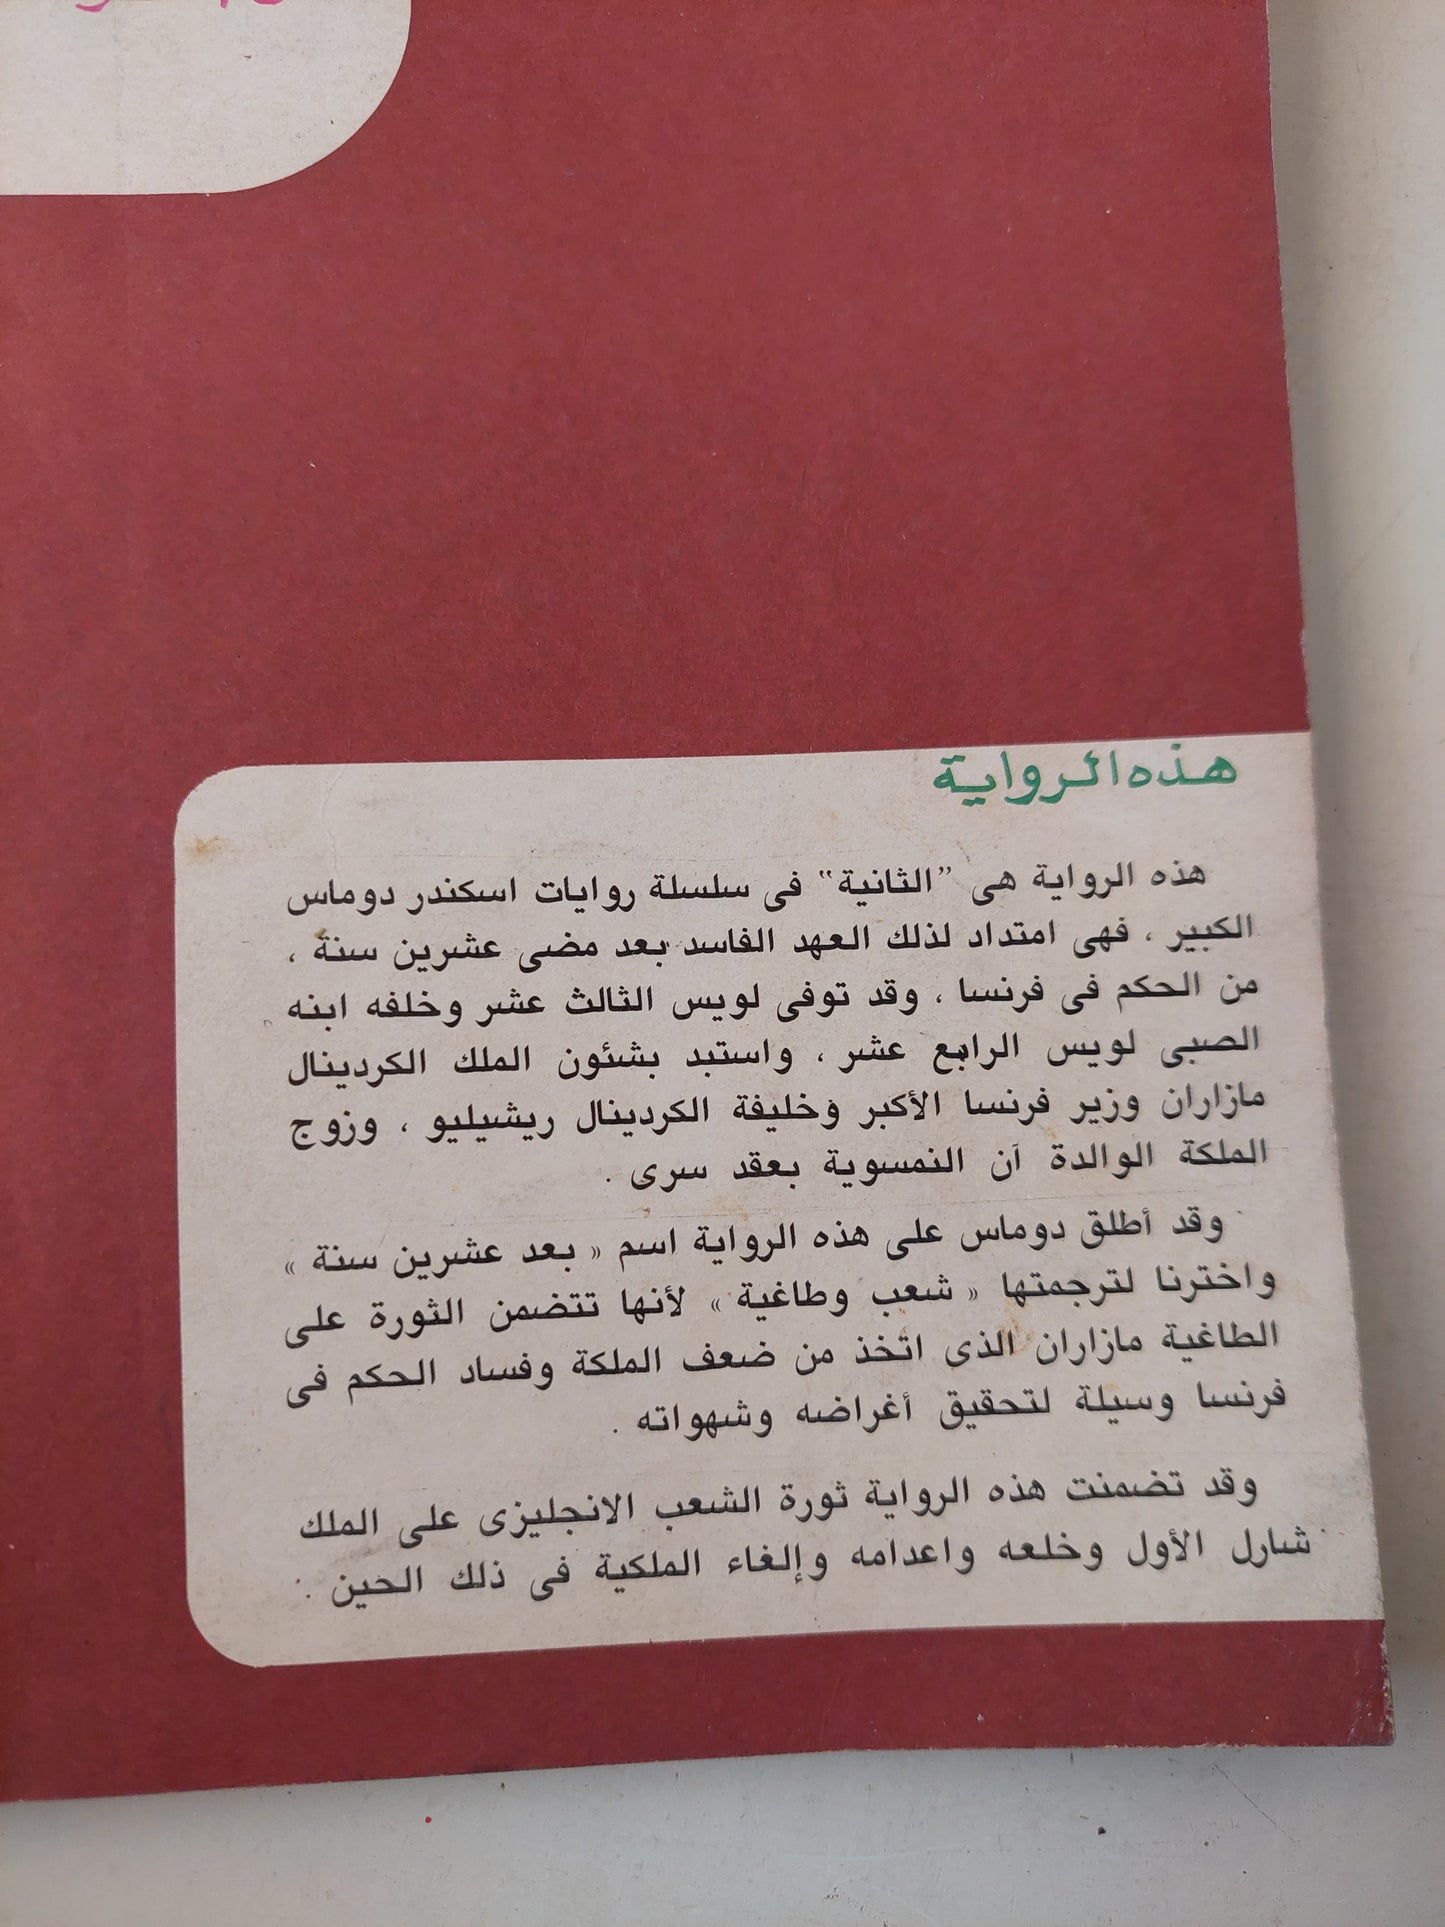 هذه الرواية
هذه الرواية هى "الثانية" فى سلسلة روايات اسكندر دوماس
الكبير ، فهى امتداد لذلك العهد الفاسد بعد مضى عشرين سنة ،
من الحكم فى فرنسا ، وقد توفى لويس الثالث عشر وخلفه ابنه
الصبى لويس الرابع عشر ، واستبد بشئون الملك الكردينال
مازاران وزير فرنسا الأكبر وخليفة الكردينال ريشيليو ، وزوج
الملكة الوالدة آن النمسوية بعقد سرى .
وقد أطلق دوماس على هذه الرواية اسم « بعد عشرين سنة »
واخترنا لترجمتها « شعب وطاغية » لأنها تتضمن الثورة على
الطاغية مازاران الذى اتخذ من ضعف الملكة وفساد الحكم فى
فرنسا وسيلة لتحقيق أغراضه وشهواته .
وقد تضمنت هذه الرواية ثورة الشعب الانجليزى على الملك
شارل الأول وخلعه واعدامه وإلغاء الملكية فى ذلك الحين .